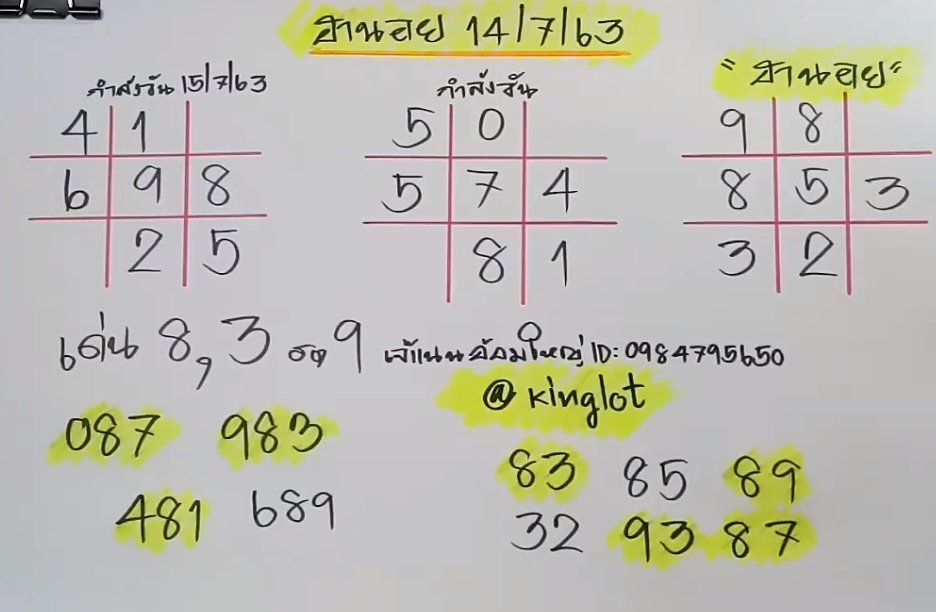 ฮานอย 14/7/63
กำลังวัน 15/7/63
4 1
6 9 8
2 5
กำลังวัน
5 0
5 7 4
8 1
"ฮานอย"
9 8
8 5 3
3 2
เด่น 8, 3 รอง 9
เจ๊แนน อ้อมใหญ่ ID: 0984795650
@ kinglot
087 983
481 689
83 85 89
32 93 87